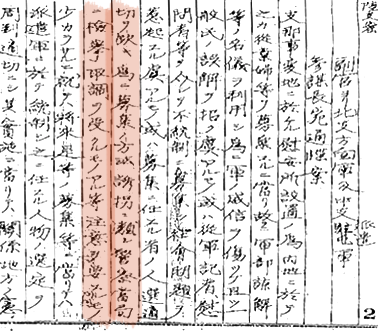 副官ヨリ北支方面軍及中支派遣軍
参謀長宛通牒案
支那事変地ニ於ケル慰安所設置ノ為内地ニ於テ
之カ従業婦等ヲ募集スルニ当リ故ラニ軍部諒解
等ノ名儀ヲ利用シ為ニ軍ノ威信ヲ傷ツケ且ツ一
般民ノ誤解ヲ招ク虞アルモノ或ハ従軍記者、慰
問者等ヲ介シテ不統制ニ募集シ社会問題ヲ
惹起スル虞アルモノ或ハ募集ニ任スル者ノ人選適
切ヲ欠キ為ニ募集ノ方法誘拐ニ類シ警察当局
ニ検挙取調ヲ受クルモノアル等注意ヲ要スルモノ
少カラサルニ就テハ将来是等ノ募集等ニ当リテハ
派遣軍ニ於テ統制シ之ニ任スル人物ノ選定ヲ
周到適切ニシ其実施ニ当リテハ関係地方ノ憲
2